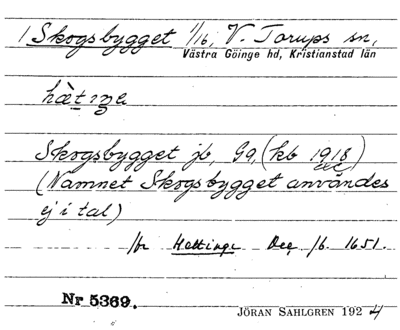 1 Skogsbygget 1/16, V. Torups sn,
Västra Göinge hd, Kristianstad län
Skogsbygget jb, Ga, (kb 1918)
(Namnet Skogsbygget användes
ej i tal)
Hettinge Dec 1651.
Nr 5369.
JÖRAN SAHLGREN 1924